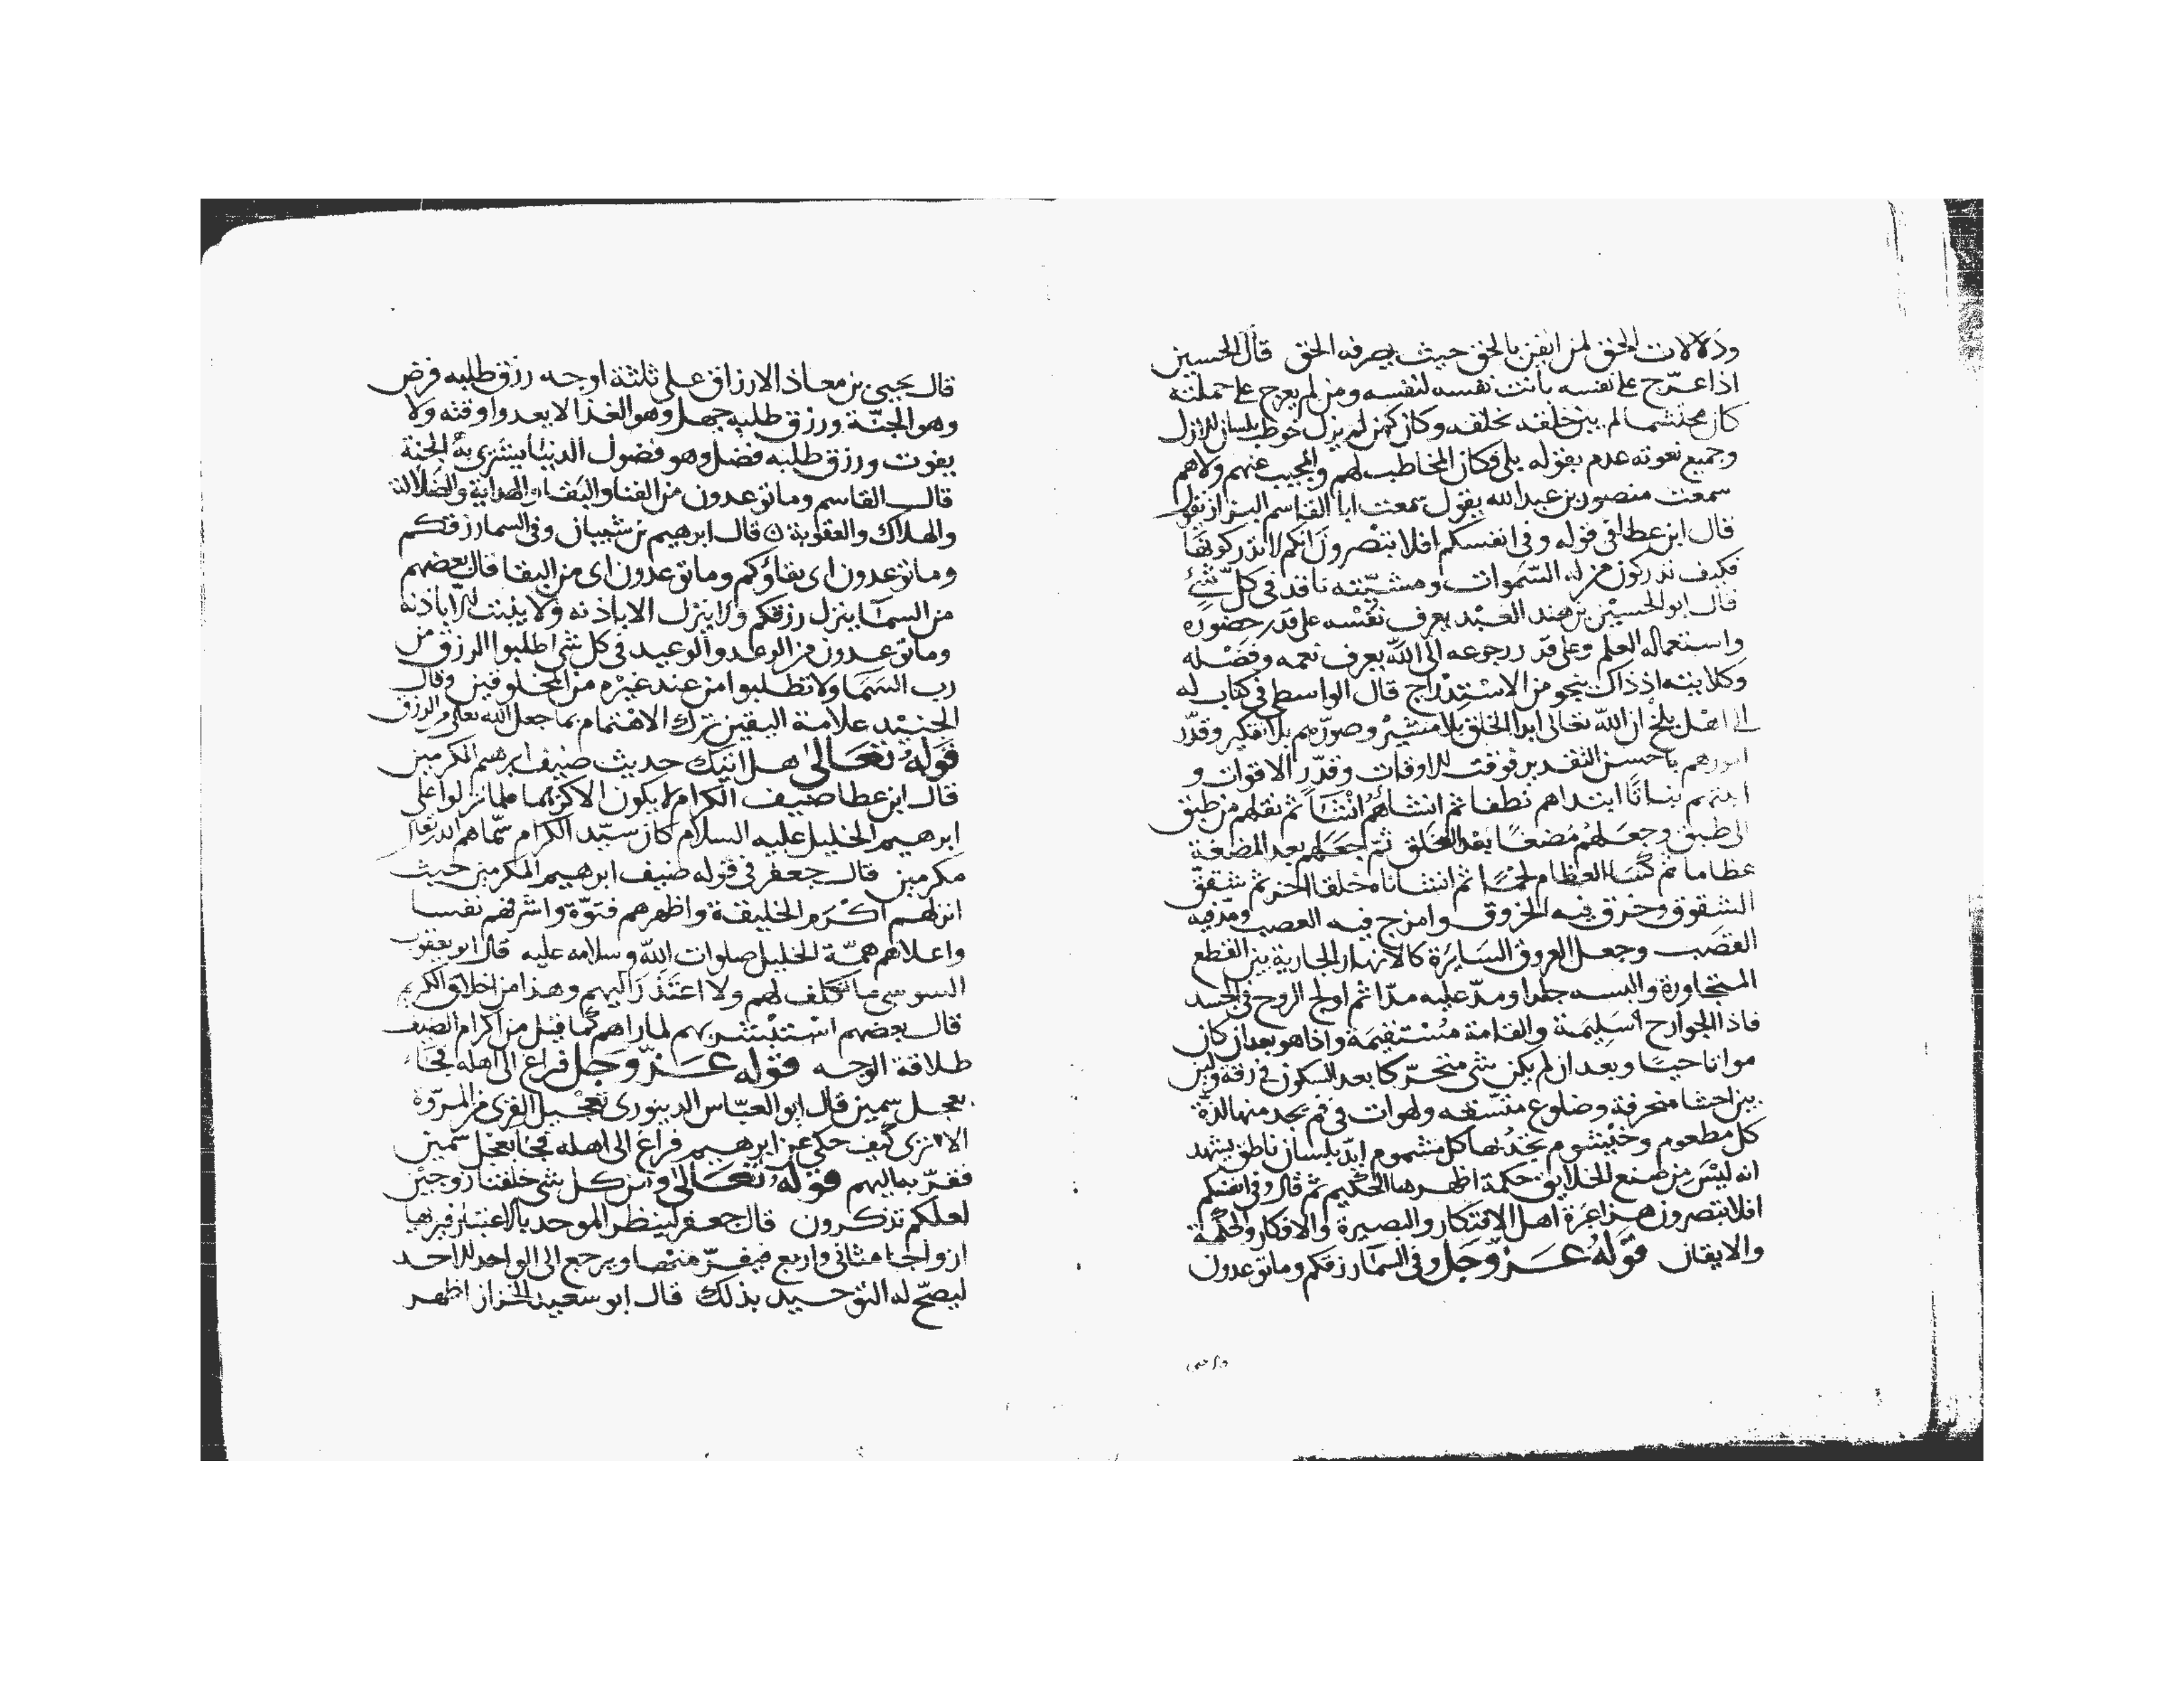 ودلالات الحق لمن ايقن بالحق حيث يعرفه الحق قال الحسين
اذا عرّج على نفسه بانت نفسه لنفسه ومن لم يعرج على جملته
كان محتشما لم يبن خلقه بخلقه وكان كمن لم يزل خوطب بلسان الازل
وجميع نعوته عدم بقوله بلى فكان المخاطب لهم والمجيب عنهم ولاهم
سمعت منصور بن عبد الله يقول سمعت ابا القاسم البزاز يقول
قال ابن عطا في قوله وفي انفسكم افلا تبصرون انكم لا تدركونها
فكيف تدركون من له السّموات ومشيّته نافذ في كلّ شئ
قال ابو الحسين بن هند العبد يعرف نفسه على قدر حضوره
واستعماله العلم وعلى قدر رجوعه الى الله يعرف نعمه وفضله
وكلايته اذ ذاك ينجو من الاستدراج قال الواسطي في كتاب له
الى اهل بلخ ان الله تعالى ابدا الخلق بلا مشير وصوّرهم بلا تفكير وقدّر
امورهم باحسن التقدير فوقت الاوقات وقدّر الاقوات و
نباتا ابتداهم نطفا ثم انشاهم انشاً ثم نقلهم من طبق
الى طبق وجعلهم مضغا بعد العلق ثم جعلهم بعد المضغة
عظاما ثم كسا العظام لحماً ثم انشاناه خلقا اخر ثم شقق
الشقوق وخرق فيه الخروق وامزج فيه العصب ومدّ فيه
القصب وجعل العروق السايرة كالانهار الجارية بين القطع
المتجاورة والبسه جلدا ومدّ عليه مدّا ثم اولج الروح في الجسد
فاذا الجوارح سليمة والقامة مستقيمة واذا هو بعد ان كان
مواتا حيّا وبعد ان لم يكن شى متحرّكا بعد السكون في رقة ولين
بين احشا منحرفة وضلوع متسّقه ولهوات في فم يجد منها لذّة
كل مطعوم وخيشوم يجد بها كل مشموم ايّد بلسان ناطق يشهد
انه ليس من صنع الخلايق حكمة اظهرها الحكيم ثم قال وفي انفسكم
افلا تبصرون هذا عبرة اهل الافتكار والبصيرة والافكار والحكمة
والايقان قوله عزّ وجل وفي السما رزقكم وما توعدون
قال يحيى بن معاذ الارزاق على ثلثة اوجه رزق طلبه فرض
وهو الجنّة ورزق طلبه جهل وهو الغذا لا يعدوا وقته ولا
يفوت ورزق طلبه فضل وهو فضول الدنيا يشترى به الجنة
قال القاسم وما توعدون من الفنا والبقا والهداية والضلالة
والهلاك والعقوبة ن قال ابرهيم بن شيبان وفي السما رزقكم
وما توعدون اى بقاؤكم وما توعدون اى من البقا قال بعضهم
من السما ينزل رزقكم ولا ينزل الا باذنه ولا ينبت الا باذنه
وما توعدون من الوعد والوعيد في كل شى اطلبوا الرزق من
رب السما ولا تطلبوا من عند غيره من المخلوقين وقال
الجنيد علامة اليقين ترك الاهتمام بما جعل الله تعالى من الرزق
قوله تعالى هل اتيك حديث ضيف ابرهيم المكرمين
قال ابن عطا ضيف الكرام لا يكون الا كريما فلما نزلوا على
ابرهيم الخليل عليه السلام كان سيّد الكرام سمّاهم الله تعالى
مكرمين قال جعفر في قوله ضيف ابرهيم المكرمين حيث
انزلهم اكرم الخليقة واظهرهم فتوّة واشرفهم نفسا
واعلاهم همّة الخليل صلوات الله وسلامه عليه قال ابو يعقوب
السوسى ما تكلف لهم ولا اعتذر اليهم وهذا من اخلاق الكريم
قال بعضهم استبشر بهم لما راهم كما قيل من اكرام الضيف
طلاقة الوجه قوله عزّ وجل فراغ الى اهله فجاء
بعجل سمين قال ابو العبّاس الدينورى تعجيل القرى من المروّة
الا ترى كيف حكى عن ابرهيم فراغ الى اهله فجا بعجل سمين
فقرّبه اليهم قوله تعالى ومن كل شى خلقنا زوجين
لعلكم تذكرون قال جعفر لينظر الموحد بالاعتبار فيرىها
ازواجا مثانى واربع فيفرّ منها ويرجع الى الواحد الاحد
ليصحّ له التوحيد بذلك قال ابو سعيد الخراز اظهر